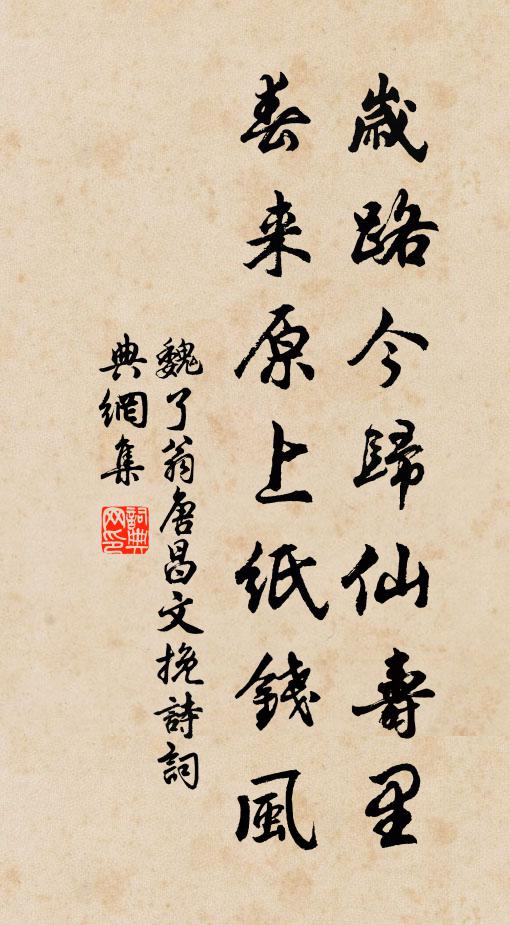 歲路今歸仙壽里
春来原上紙錢風
魏了翁唐昌文挽詩詞
典網集
詞典网印